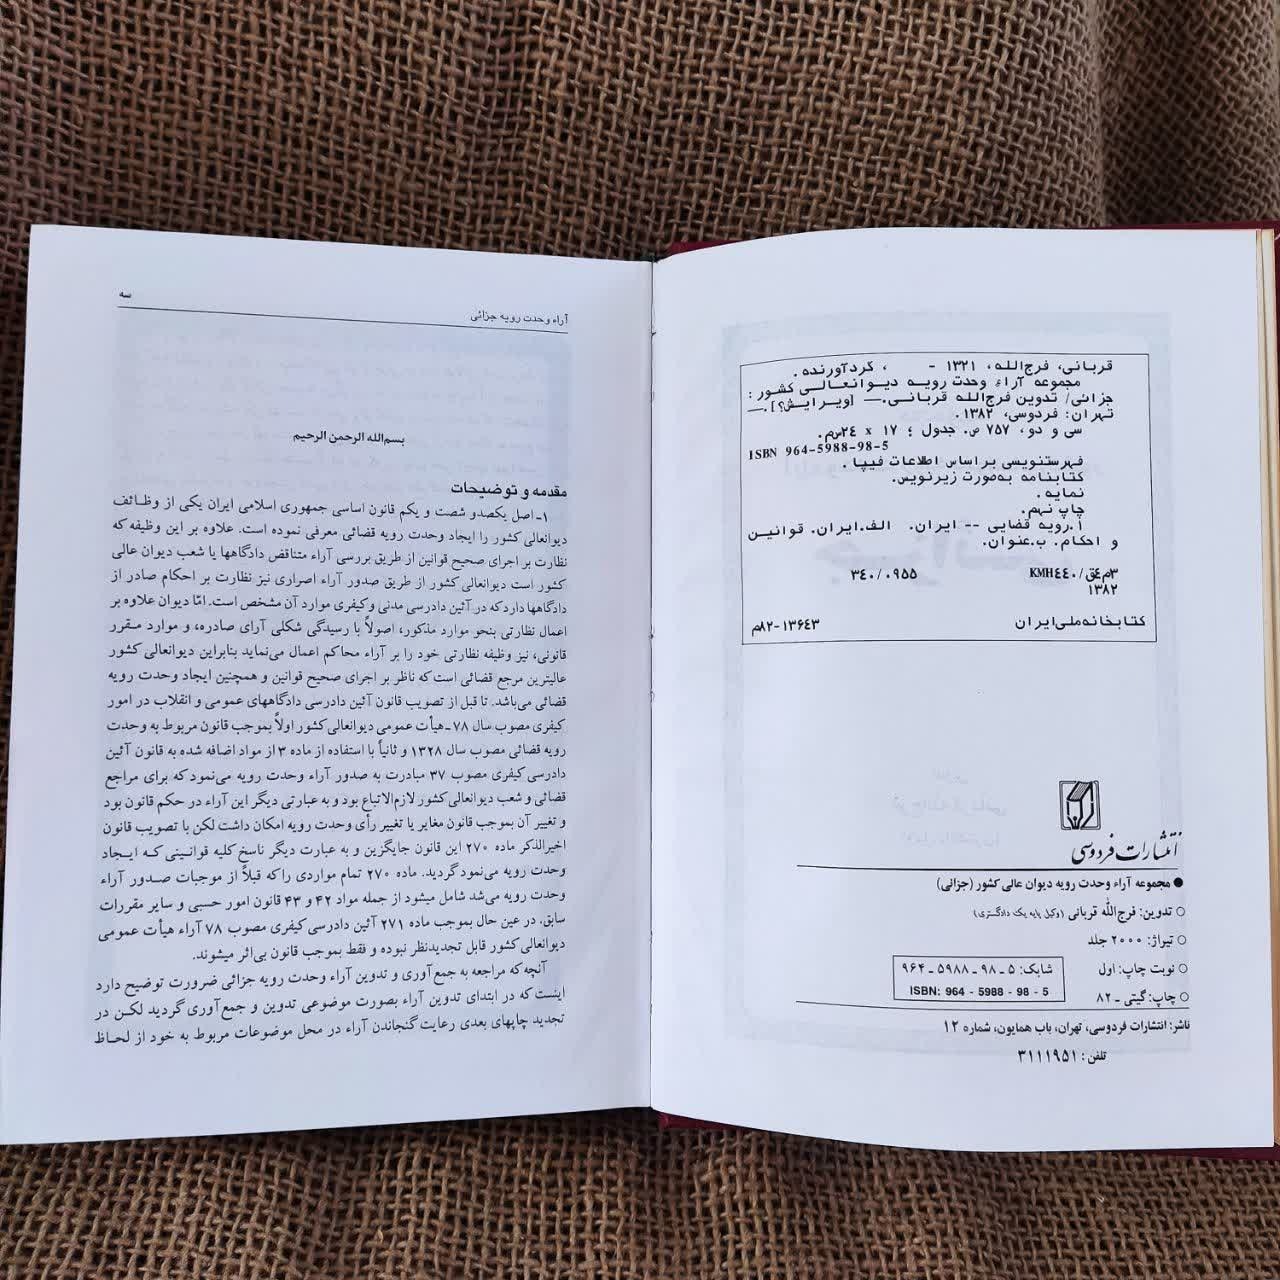 قربانی، فرج‌الله، ۱۳۲۱ - ، گردآورنده.
مجموعه آراء وحدت رویه دیوانعالی کشور:
جزائی/ تدوین فرج‌الله قربانی.— [ویرایش؟].—
تهران: فردوسی، ۱۳۸۲.
سی و دو، ۷۵۷ ص. جدول؛ ۱۷ x ۲۴س‌م.
ISBN 964-5988-98-5
فهرستنویسی براساس اطلاعات فیپا.
کتابنامه به‌صورت زیرنویس.
نمایه.
چاپ نهم.
۱.رویه قضایی -- ایران. الف.ایران. قوانین
و احکام. ب.عنوان.
۳م۴ق/KMH۴۴۰ ۳۴۰/۰۹۵۵
۱۳۸۲
کتابخانه ملی ایران ۱۳۶۴۳-۸۲م
انتشارات فردوسی
● مجموعه آراء وحدت رویه دیوان عالی کشور (جزائی)
○ تدوین: فرج‌اللّه قربانی (وکیل پایه یک دادگستری)
○ تیراژ: ۲۰۰۰ جلد
○ نوبت چاپ: اول
شابک: ۵ ـ ۹۸ ـ ۵۹۸۸ ـ ۹۶۴
ISBN: 964 - 5988 - 98 - 5
○ چاپ: گیتی ـ ۸۲
ناشر: انتشارات فردوسی، تهران، باب همایون، شماره ۱۲
تلفن: ۳۱۱۱۹۵۱
آراء وحدت رویه جزائی سه
بسم‌الله الرحمن الرحیم
مقدمه و توضیحات
۱ـ اصل یکصدو شصت و یکم قانون اساسی جمهوری اسلامی ایران یکی از وظائف
دیوانعالی کشور را ایجاد وحدت رویه قضائی معرفی نموده است. علاوه بر این وظیفه که
نظارت بر اجرای صحیح قوانین از طریق بررسی آراء متناقض دادگاهها یا شعب دیوان عالی
کشور است دیوانعالی کشور از طریق صدور آراء اصراری نیز نظارت بر احکام صادر از
دادگاهها دارد که در آئین دادرسی مدنی و کیفری موارد آن مشخص است. امّا دیوان علاوه بر
اعمال نظارتی بنحو موارد مذکور، اصولاً با رسیدگی شکلی آرای صادره، و موارد مقرر
قانونی، نیز وظیفه نظارتی خود را بر آراء محاکم اعمال می‌نماید بنابراین دیوانعالی کشور
عالیترین مرجع قضائی است که ناظر بر اجرای صحیح قوانین و همچنین ایجاد وحدت رویه
قضائی می‌باشد. تا قبل از تصویب قانون آئین دادرسی دادگاههای عمومی و انقلاب در امور
کیفری مصوب سال ۷۸ ـ هیأت عمومی دیوانعالی کشور اولاً بموجب قانون مربوط به وحدت
رویه قضائی مصوب سال ۱۳۲۸ و ثانیاً با استفاده از ماده ۳ از مواد اضافه شده به قانون آئین
دادرسی کیفری مصوب ۳۷ مبادرت به صدور آراء وحدت رویه می‌نمود که برای مراجع
قضائی و شعب دیوانعالی کشور لازم‌الاتباع بود و به عبارتی دیگر این آراء در حکم قانون بود
و تغییر آن بموجب قانون مغایر یا تغییر رأی وحدت رویه امکان داشت لکن با تصویب قانون
اخیرالذکر ماده ۲۷۰ این قانون جایگزین و به عبارت دیگر ناسخ کلیه قوانینی که ایجاد
وحدت رویه می‌نمود گردید. ماده ۲۷۰ تمام مواردی را که قبلاً از موجبات صدور آراء
وحدت رویه می‌شد شامل میشود از جمله مواد ۴۲ و ۴۳ قانون امور حسبی و سایر مقررات
سابق. در عین حال بموجب ماده ۲۷۱ آئین دادرسی کیفری مصوب ۷۸ آراء هیأت عمومی
دیوانعالی کشور قابل تجدیدنظر نبوده و فقط بموجب قانون بی‌اثر میشوند.
آنچه که مراجعه به جمع‌آوری و تدوین آراء وحدت رویه جزائی ضرورت توضیح دارد
اینست که در ابتدای تدوین آراء بصورت موضوعی تدوین و جمع‌آوری گردید لکن در
تجدید چاپهای بعدی رعایت گنجاندن آراء در محل موضوعات مربوط به خود از لحاظ